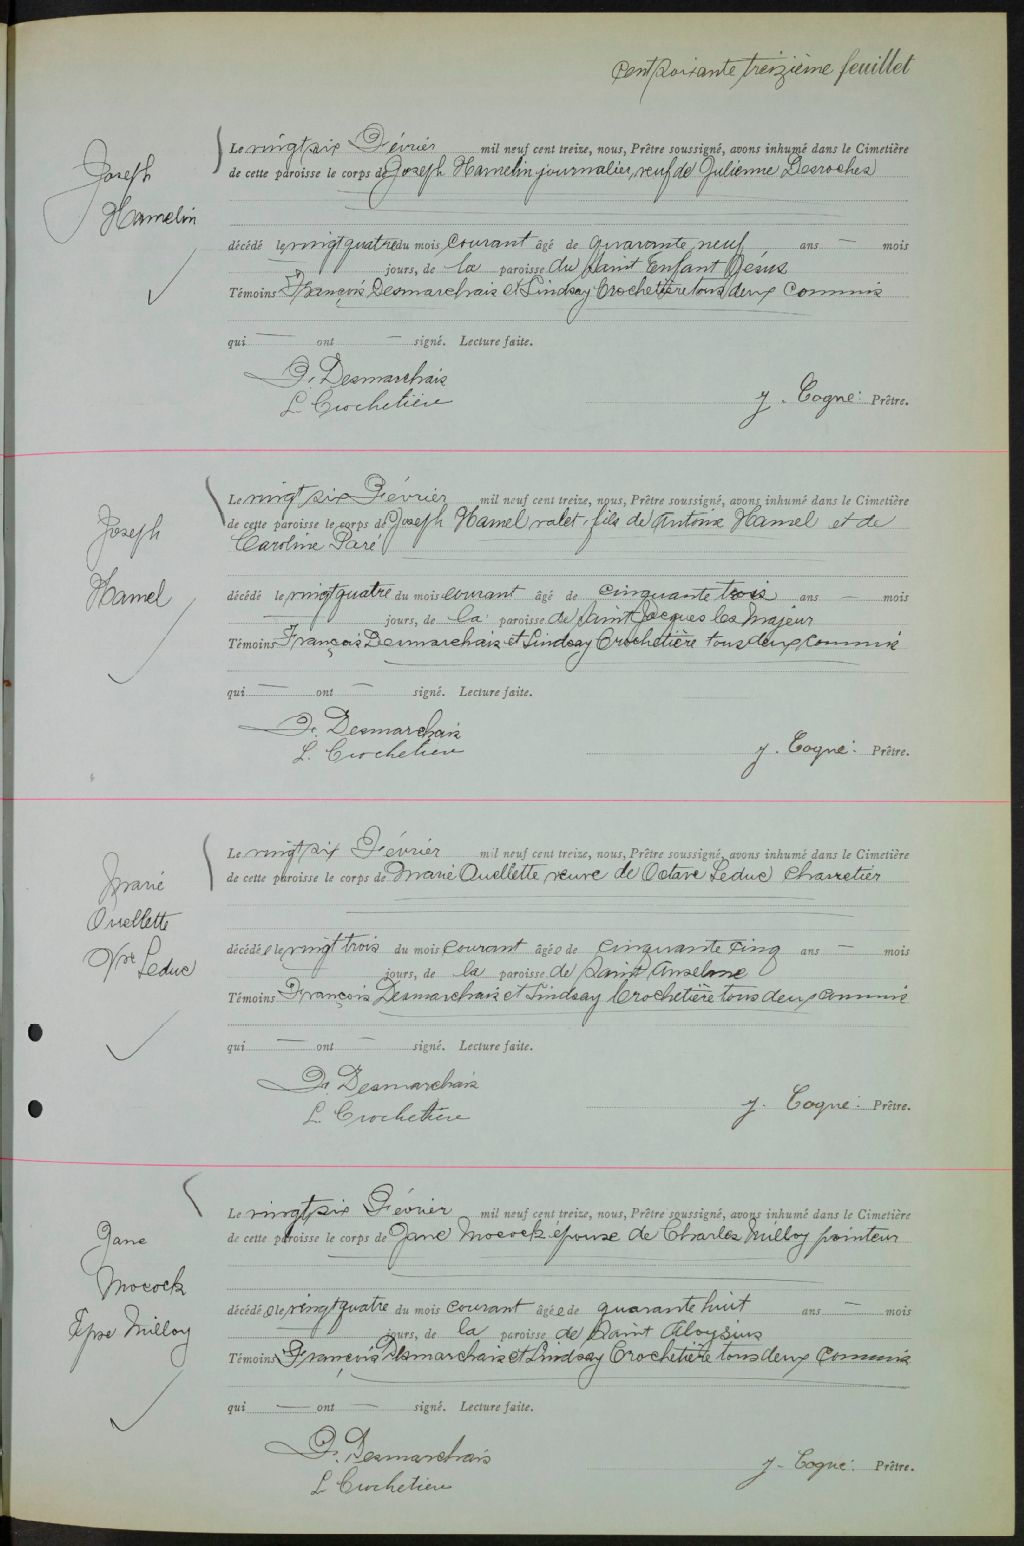 cent soixante treizième feuillet
Joseph
Hamelin
Le vingt six Février mil neuf cent treize, nous, Prêtre soussigné, avons inhumé dans le Cimetière
de cette paroisse le corps de Joseph Hamelin journalier, veuf de Julienne Desroches
décédé le vingt quatre du mois courant âgé de quarante neuf ans — mois
jours, de la paroisse du Saint Enfant Jésus
Témoins François Desmarchais et Lindsay Crochetière tous deux commis
qui — ont — signé. Lecture faite.
F. Desmarchais
L. Crochetière
J. Cogné: Prêtre.
Joseph
Hamel
Le vingt six Février mil neuf cent treize, nous, Prêtre soussigné, avons inhumé dans le Cimetière
de cette paroisse le corps de Joseph Hamel valet, fils de Antoine Hamel et de
Caroline Paré
décédé le vingt quatre du mois courant âgé de cinquante trois ans — mois
jours, de la paroisse de Saint Jacques les Majeur
Témoins François Desmarchais et Lindsay Crochetière tous deux commis
qui — ont — signé. Lecture faite.
F. Desmarchais
L. Crochetiere
J. Cogné: Prêtre.
Marie
Ouellette
Vve Leduc
Le vingt six Février mil neuf cent treize, nous, Prêtre soussigné, avons inhumé dans le Cimetière
de cette paroisse le corps de Marie Ouellette veuve de Octave Leduc charretier
décédée le vingt trois du mois courant âgée de cinquante cinq ans — mois
jours, de la paroisse de Saint Anselme
Témoins François Desmarchais et Lindsay Crochetière tous deux commis
qui — ont — signé. Lecture faite.
F. Desmarchais
L. Crochetière
J. Cogné: Prêtre.
Jane
Mocock
Épse Milloy
Le vingt six Février mil neuf cent treize, nous, Prêtre soussigné, avons inhumé dans le Cimetière
de cette paroisse le corps de Jane Mocock épouse de Charles Milloy pointeur
décédée le vingt quatre du mois courant âgée de quarante huit ans — mois
jours, de la paroisse de Saint Aloysius
Témoins François Desmarchais et Lindsay Crochetière tous deux commis
qui — ont — signé. Lecture faite.
F. Desmarchais
L. Crochetiere
J. Cogné: Prêtre.